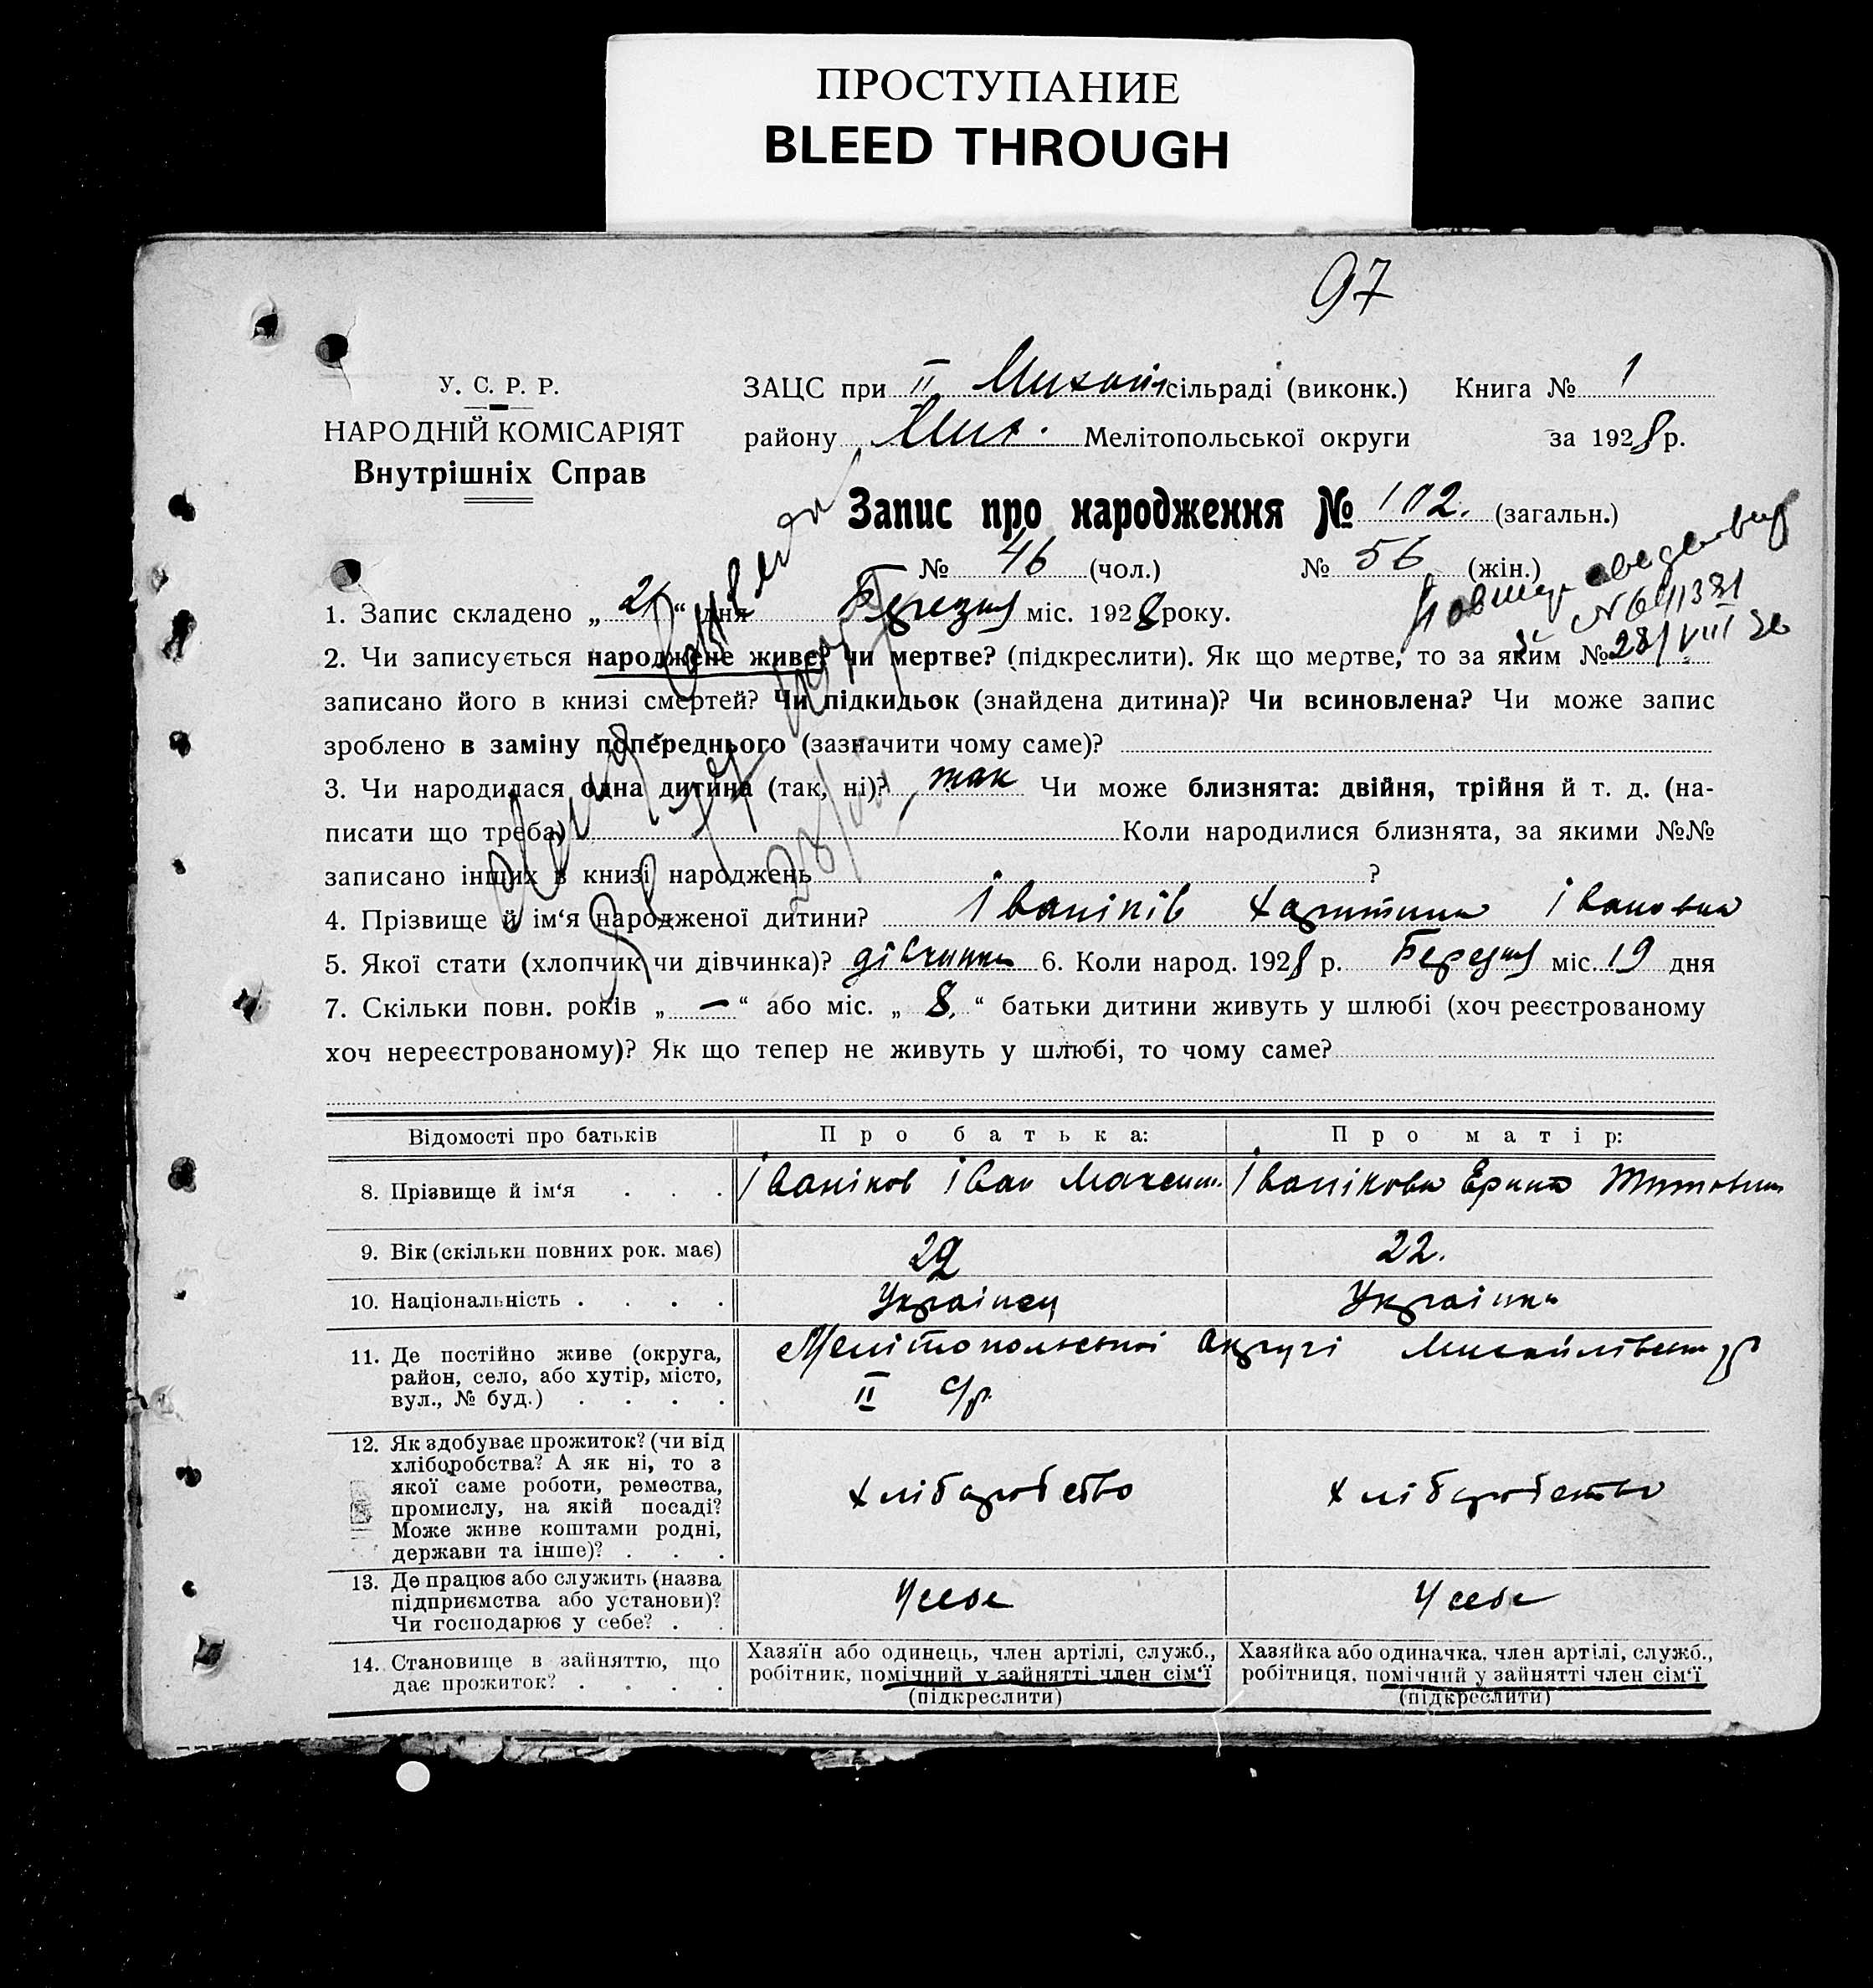 ПРОСТУПАНИЕ
BLEED THROUGH
97
У. С. Р. Р.
НАРОДНІЙ КОМІСАРІЯТ
Внутрішніх Справ
ЗАЦС при II Михайл сільраді (виконк.) Книга № 1
району Мих. Мелітопольської округи за 1928 р.
Запис про народження № 102. (загальн.)
№ 46 (чол.) № 56 (жін.)
1. Запис складено „ 21 “ дня Березня міс. 1928 року.
2. Чи записується народжене живе? чи мертве? (підкреслити). Як що мертве, то за яким №
28/VIII 36
записано його в книзі смертей? Чи підкидьок (знайдена дитина)? Чи всиновлена? Чи може запис
зроблено в заміну попереднього (зазначити чому саме)?
3. Чи народилася одна дитина (так, ні)? так Чи може близнята: двійня, трійня й т. д. (на-
писати що треба) Коли народилися близнята, за якими №№
записано інших в книзі народжень ?
4. Прізвище й ім‘я народженої дитини? Іванінів Харитина Івановна
5. Якої стати (хлопчик чи дівчинка)? дівчинка 6. Коли народ. 1928 р. Березня міс. 19 дня
7. Скільки повн. років „ — “ або міс. „ 8. “ батьки дитини живуть у шлюбі (хоч реєстрованому
хоч нереєстрованому)? Як що тепер не живуть у шлюбі, то чому саме?
Відомості про батьків Про батька: Про матір:
8. Прізвище й ім‘я . . . Іваніков Іван Максим. Іванікова Ерина Титовна
9. Вік (скільки повних рок. має) 29 22.
10. Національність . . . . Українец Українка
11. Де постійно живе (округа, район, село, або хутір, місто, вул., № буд.) . . . . Мелітопольської округі Михайлівськ р
II с/р.
12. Як здобуває прожиток? (чи від хліборобства? А як ні, то з якої саме роботи, ремества, промислу, на якій посаді? Може живе коштами родні, держави та інше)? . . . хліборобство хліборобство
13. Де працює або служить (назва підприємства або установи)? Чи господарює у себе? . . У себе У себе
14. Становище в зайняттю, що дає прожиток? . . . .
Хазяїн або одинець, член артілі, служб., робітник, помічний у зайнятті член сім‘ї (підкреслити)
Хазяйка або одиначка, член артілі, служб., робітниця, помічний у зайнятті член сім‘ї (підкреслити)